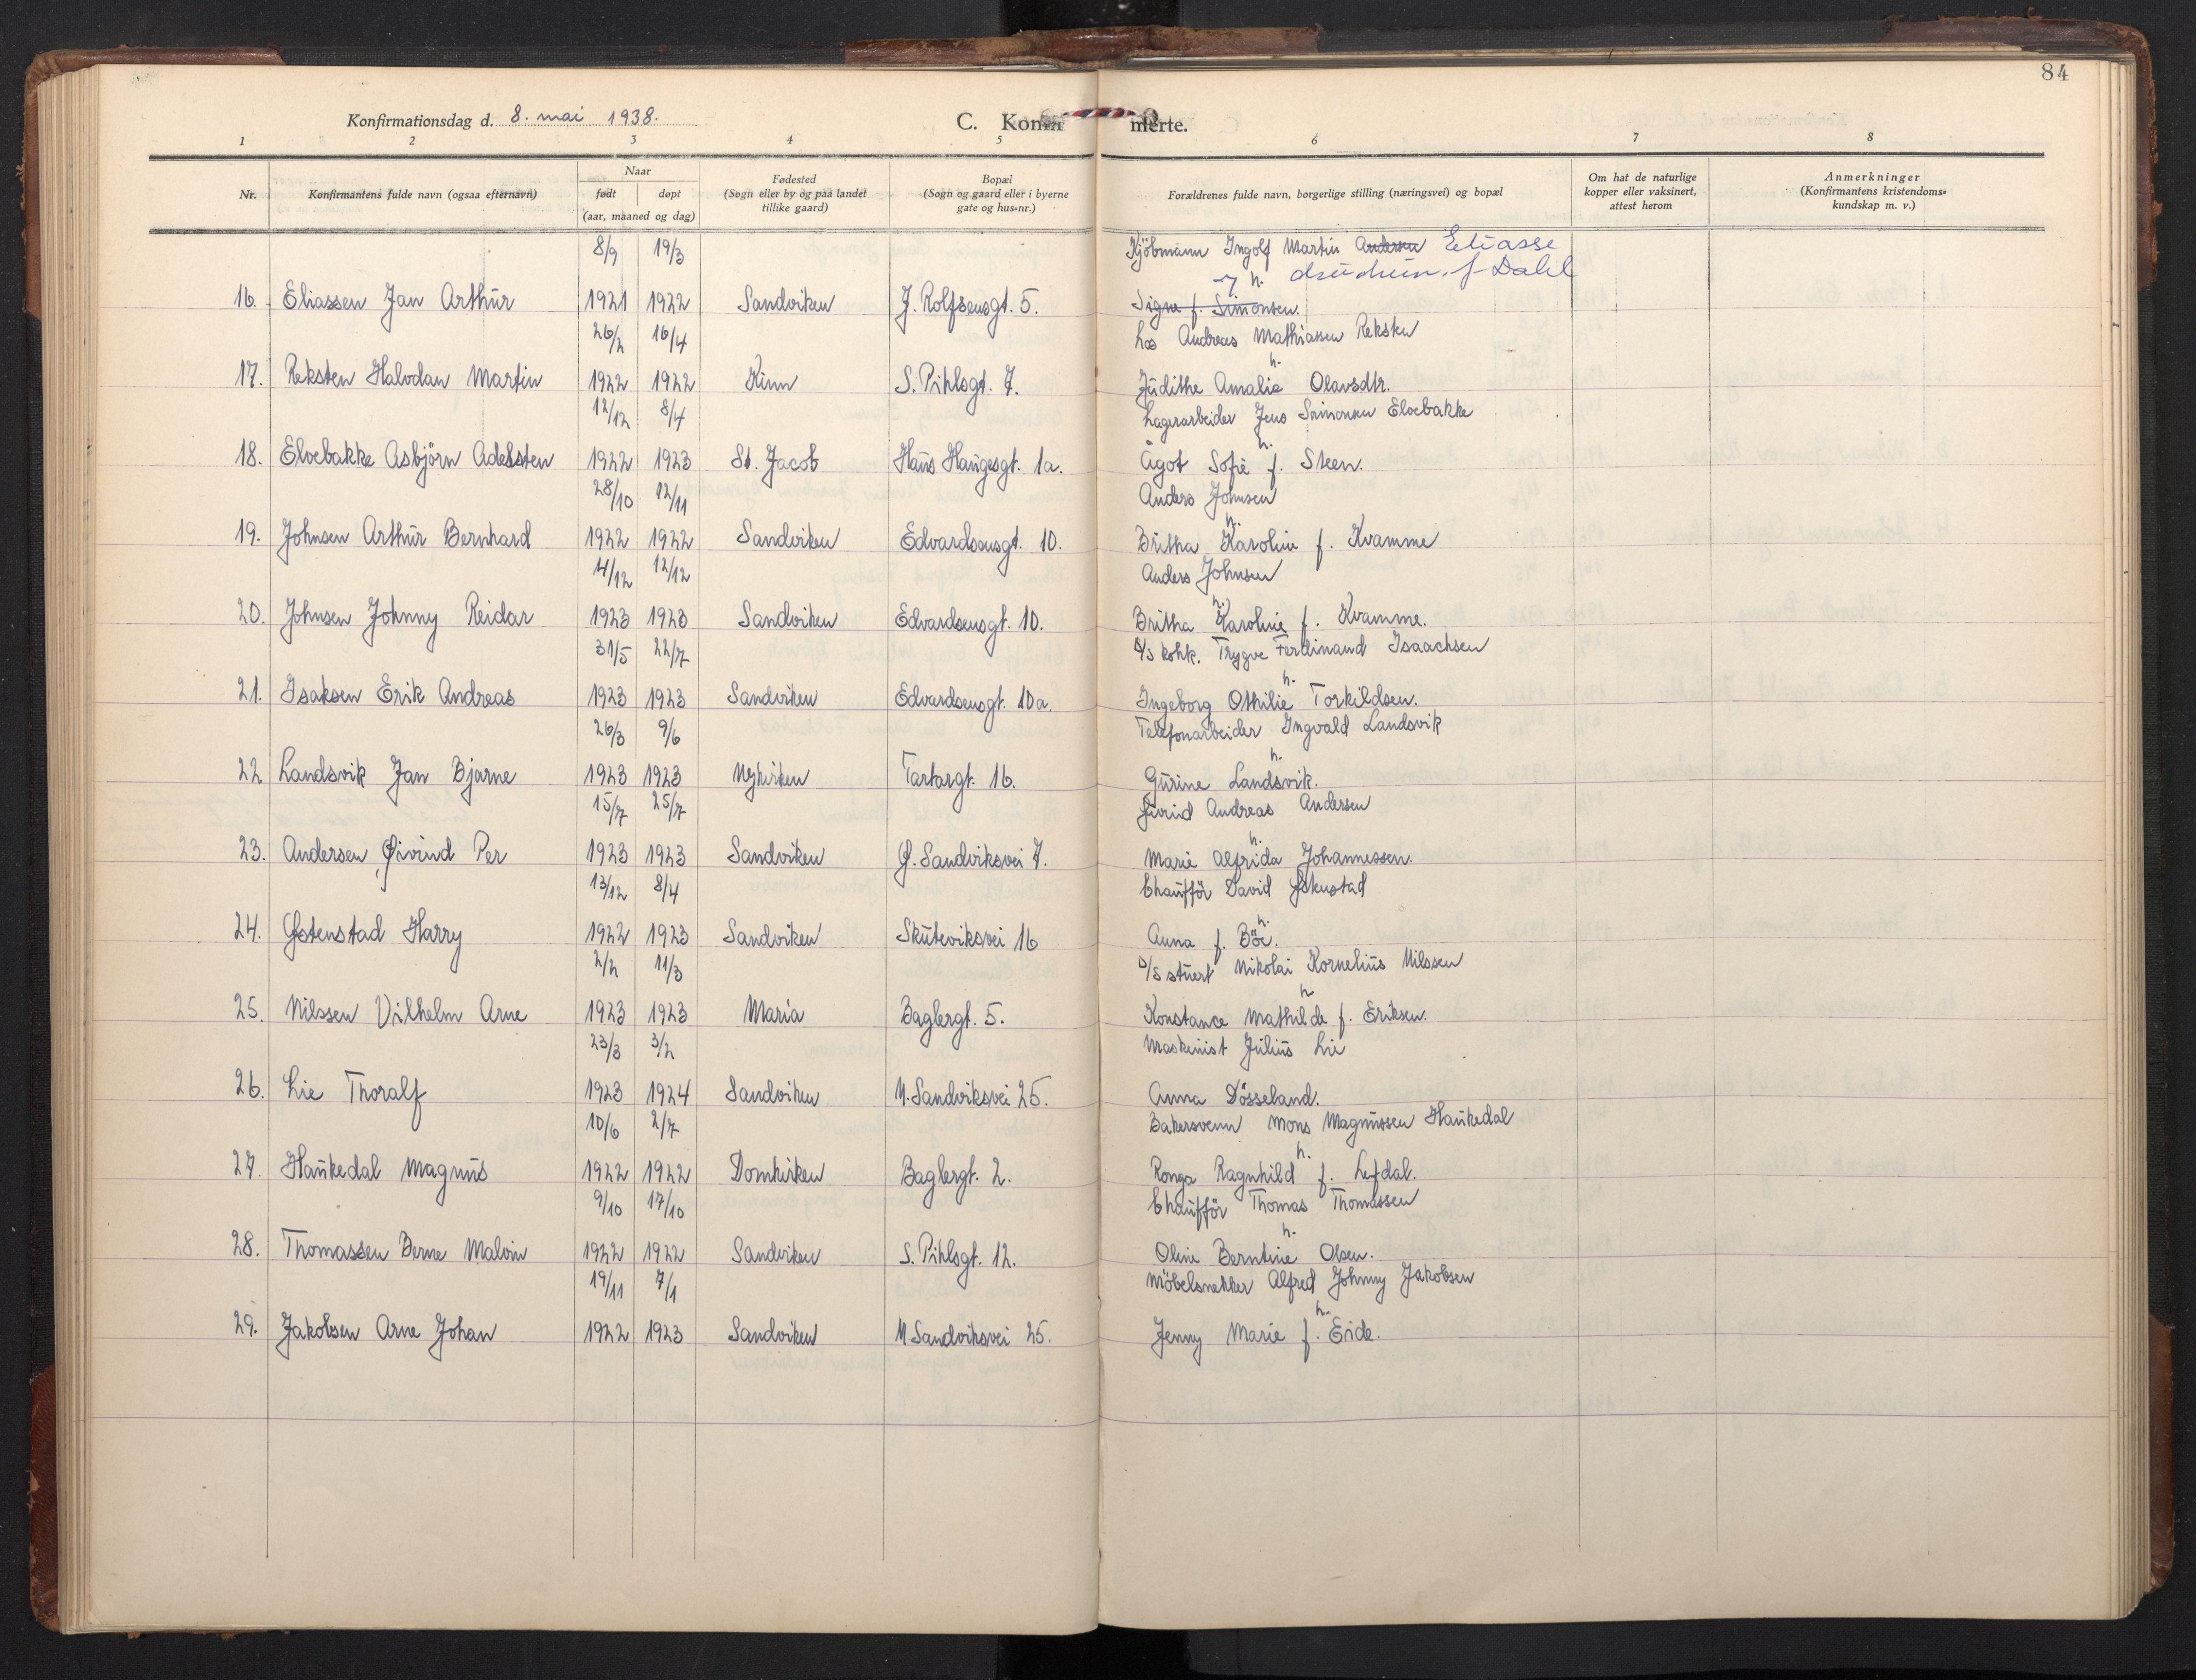 84
Konfirmationsdag d. 8. mai 1938. C. Konfirmerte.
1 2 3 4 5 6 7 8
Nr. Konfirmantens fulde navn (ogsaa efternavn) Naar født døpt (aar, maaned og dag) Fødested (Sogn eller by og paa landet tillike gaard) Bopæl (Sogn og gaard eller i byerne gate og hus-nr.) Forældrenes fulde navn, borgerlige stilling (næringsvei) og bopæl Om hat de naturlige kopper eller vaksinert, attest herom Anmerkninger (Konfirmantens kristendomskundskap m. v.)
8/9 19/3 Kjöbmann Ingolf Martin Andersen Eliasse
h. f. Dahl
16. Eliassen Jan Arthur 1921 1922 Sandviken J. Rolfsensgt. 5. Signe f. Simonsen.
26/2 16/4 Los Andreas Mathiassen Reksten
h.
17. Reksten Halvdan Martin 1922 1922 Kinn S. Pihlsgt. 7. Judithe Amalie Olavsdtr.
12/12 8/4 Lagerarbeider Jens Simonsen Elvebakke
h.
18. Elvebakke Asbjörn Adelsten 1922 1923 St. Jacob Hans Haugesgt. 1a. Ågot Sofie f. Steen.
28/10 12/11 Anders Johnsen
h.
19. Johnsen Arthur Bernhard 1922 1922 Sandviken Edvardsensgt. 10. Britha Karoline f. Kvamme
4/12 12/12 Anders Johnsen
h.
20. Johnsen Johnny Reidar 1923 1923 Sandviken Edvardsensgt. 10. Britha Karoline f. Kvamme.
31/5 22/7 D/S kokk. Trygve Ferdinand Isaachsen
h.
21. Isaksen Erik Andreas 1923 1923 Sandviken Edvardsensgt. 10a. Ingeborg Othilie Torkildsen.
26/3 9/6 Telefonarbeider Ingvald Landsvik
h.
22 Landsvik Jan Bjarne 1923 1923 Nykirken Tartargt. 16. Gurine Landsvik.
15/7 25/7 Eivind Andreas Andersen
h.
23. Andersen Øivind Per 1923 1923 Sandviken Ø. Sandviksvei 7. Marie Alfrida Johannessen.
13/12 8/4 Chaufför David Østenstad
h.
24. Østenstad Harry 1922 1923 Sandviken Skuteviksvei 16 Anna f. Böe.
2/2 11/3 D/S stuert Nikolai Kornelius Nilssen
h
25. Nilssen Vilhelm Arne 1923 1923 Maria Baglergt. 5. Konstance Mathilde f. Eriksen.
23/3 3/2 Maskinist Julius Lie
26. Lie Thoralf 1923 1924 Sandviken N. Sandviksvei 25. Anna Dösseland.
10/6 2/7 Bakersvenn Mons Magnussen Haukedal
h.
27. Haukedal Magnus 1922 1922 Domkirken Baglergt. 2. Ronga Ragnhild f. Lefdal.
9/10 17/10 Chaufför Thomas Thomassen
h.
28. Thomassen Berne Malvin 1922 1922 Sandviken S. Pihlsgt. 12. Oline Berntine Olsen.
19/11 7/1 Möbelsnekker Alfred Johnny Jakobsen
h.
29. Jakobsen Arne Johan 1922 1923 Sandviken N Sandviksvei 25. Jenny Marie f. Eide.